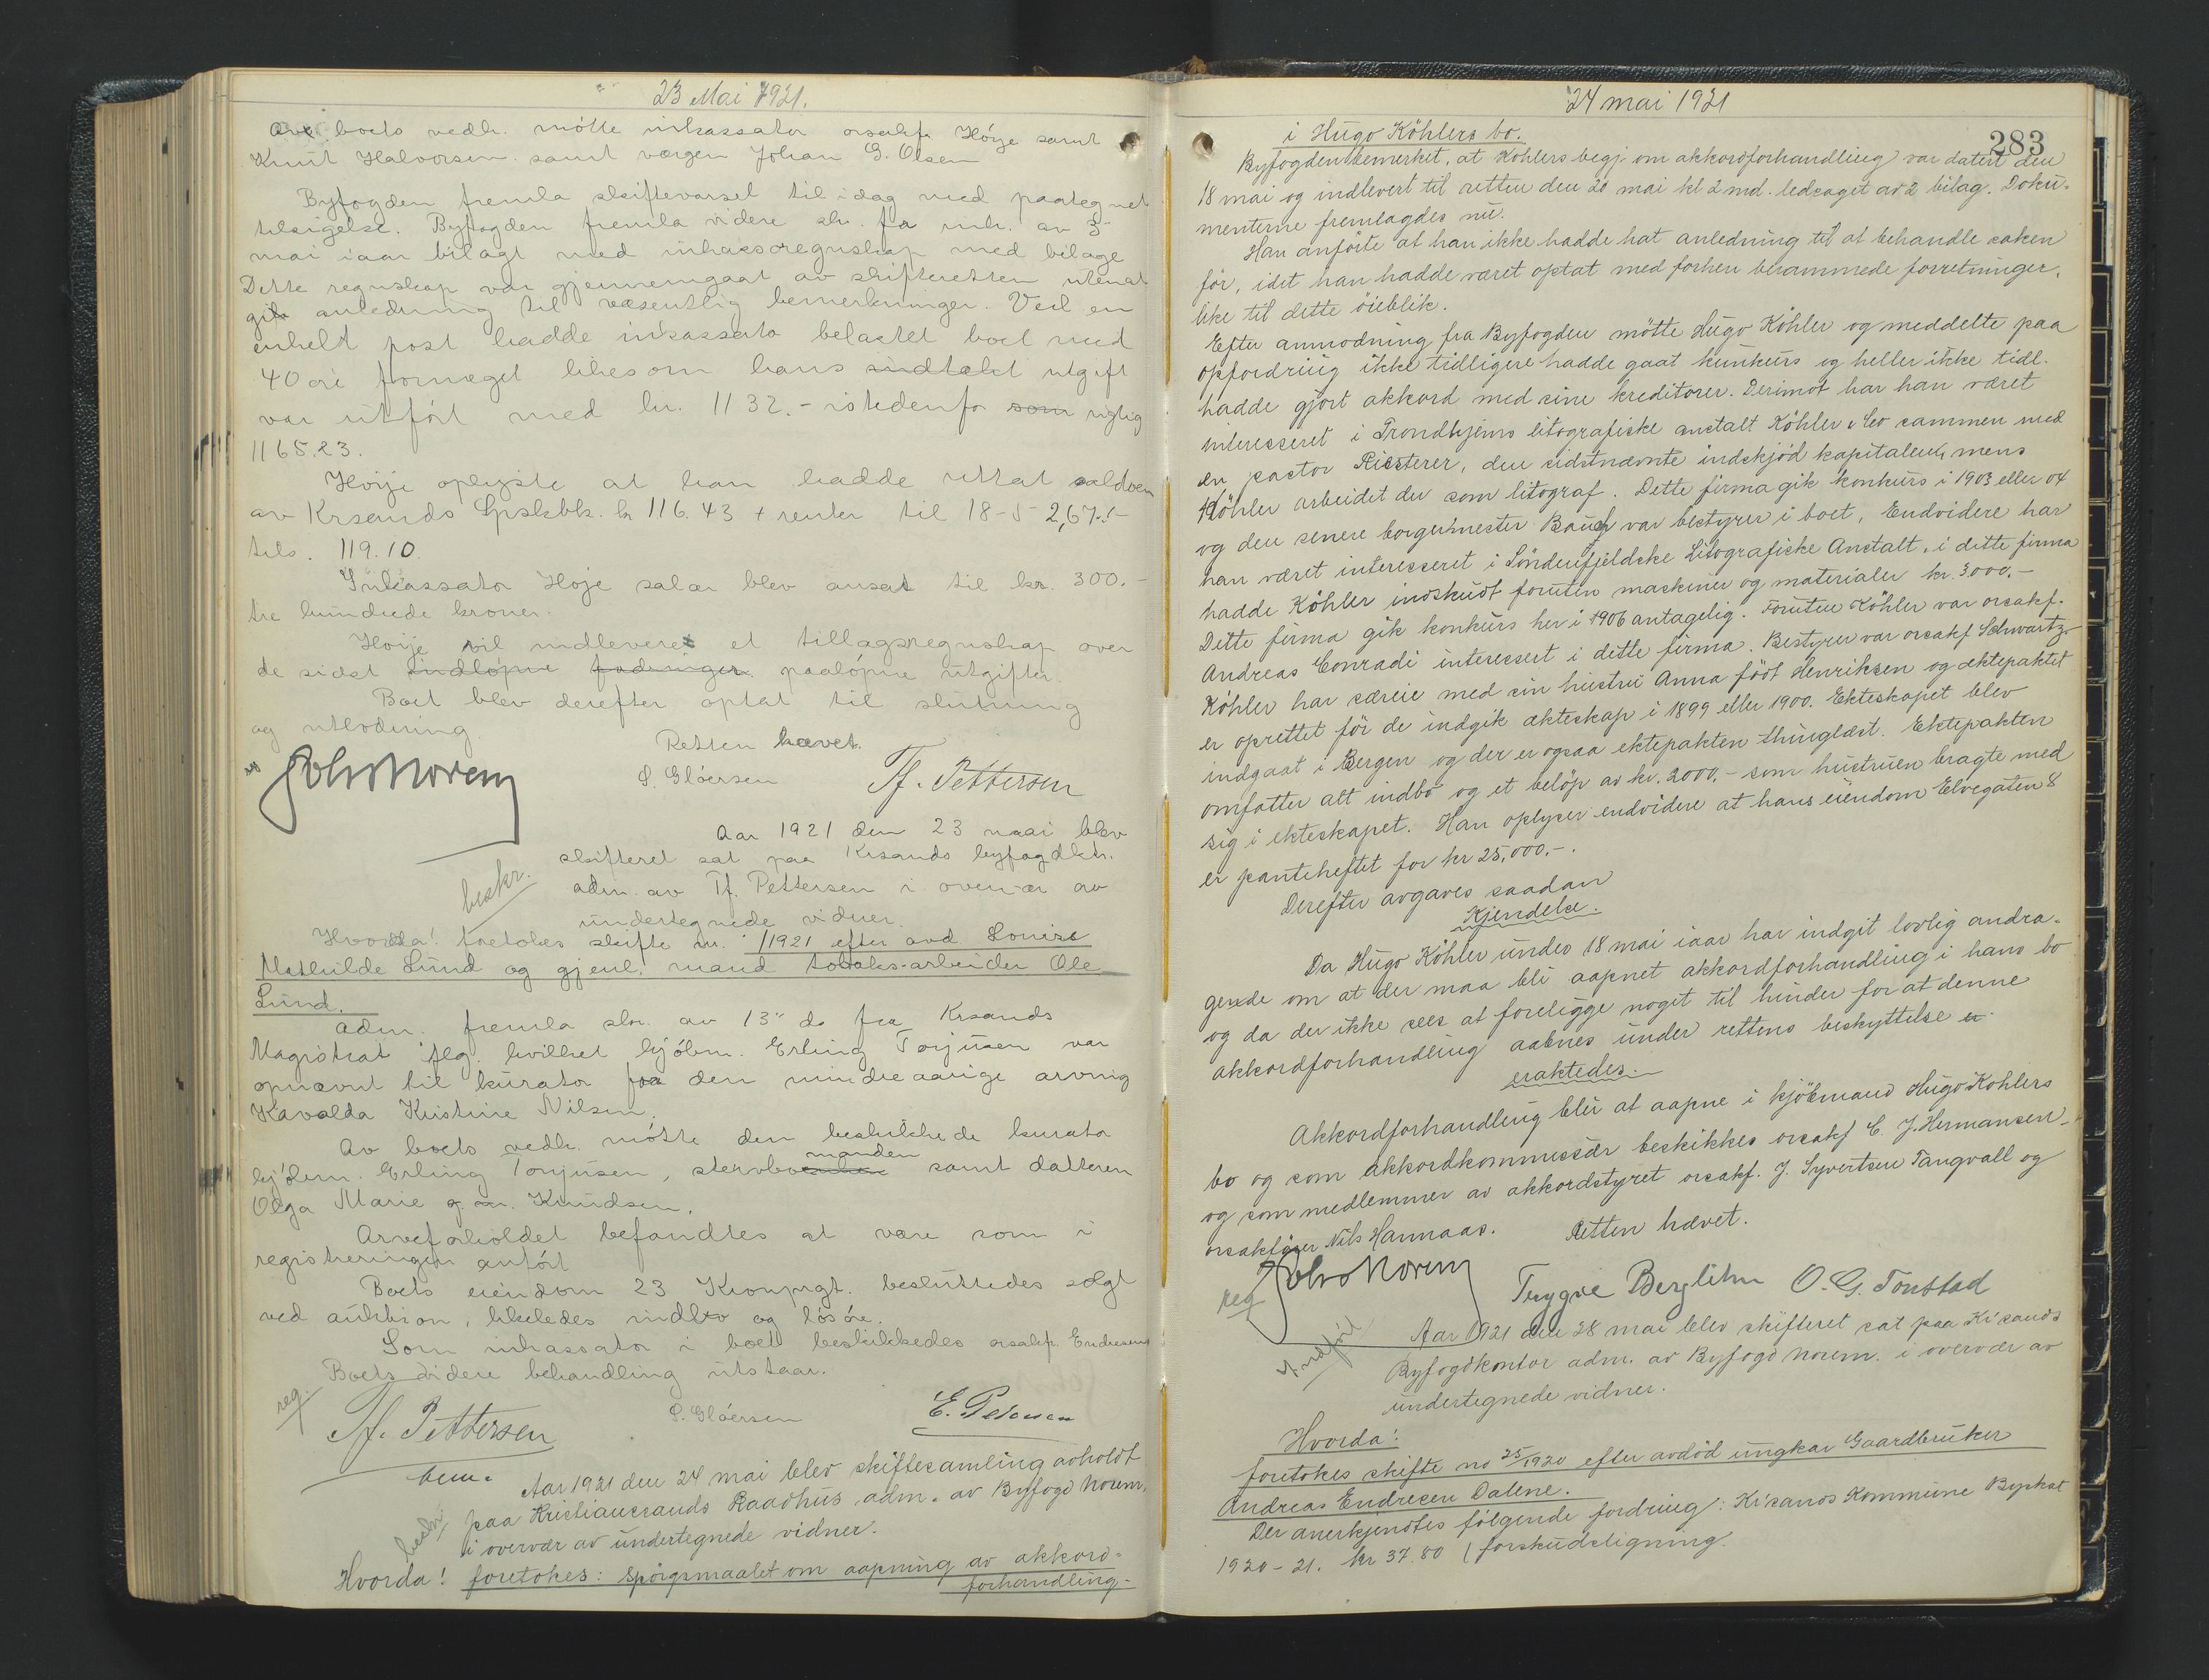 23 Mai 1921.
Av boets vedk. mötte inkassator orsakf. Höije samt
Knut Halvorsen samt vergen Johan G. Olsen
Byfogden fremla skiftevarsel til idag med paategnet
tilsigelse. Byfogden fremla videre skr. fra ink. av 3"
mai iaar bilagt med inkassoregnskap med bilage
Dette regnskap var gjennemgaat av skifteretten utenat
gi anledning til væsentlig bemerkninger. Ved en
enkelt post hadde inkassator belastet boet med
40 öre formeget likesom hans indtækt utgift
var utfört med kr. 1132.- istedenfor som rigtig
1165.23.
Höije oplyste at han hadde uttat saldoen
av Krsands Spskbk. kr 116.43 + renter til 18-5 2,67.-
tils. 119.10.
Inkassator Höije salær blev ansat til kr. 300.-
tre hundrede kroner.
Höije vil indlevere et tillægsregnskap over
de sidst indlöpne fordringer paalöpne utgifter.
Boet blev derefter optat til slutning
og utlodning.
Retten hævet.
Solv Norem S. Glöersen Tf. Pettersen
reg
Aar 1921 den 23 mai blev
skifteret sat paa Krsands byfogdktr.
adm. av Tf. Pettersen i overvær av
undertegnede vidner.
beskr.
Hvorda! foretokes skifte nr. /1921 efter avd. Louise
Mathilde Lund og gjenl. mand tobaks-arbeider Ole
Lund.
Adm. fremla skr. av 13" ds fra Krsands
Magistrat iflg. hvilket kjöbm. Erling Torjusen var
opnævnt til kurator for den mindreaarige arving
Kavalda Kristine Nilsen.
Av boets vedk. mötte den beskikkede kurator
kjöbm. Erling Torjusen, stervbomanden samt datteren
Olga Marie g.m. Knudsen.
Arveforholdet befandtes at være som i
registreringen anfört
Boets eiendom 23 Kronprgt. besluttedes solgt
ved auktion, likeledes indbo og lösöre.
Som inkassator i boet beskikkedes orsakf. Endresen
Boets videre behandling utstaar.
reg
Tf. Pettersen S. Glöersen E. Petersen
bem.
Aar 1921 den 24 mai blev skiftesamling avholdt
paa Kristianssands Raadhus adm. av Byfogd Norem,
i overvær av undertegnede vidner.
beskr.
Hvorda! foretokes: Spörgsmaalet om aapning av akkord-
forhandling-
24 mai 1921
283
i Hugo Köhlers bo.
Byfogden bemerket, at Köhlers begj. om akkordforhandling var datert den
18 mai og indlevert til retten den 20 mai kl 2 md. ledsaget av 2 bilag. Doku-
menterne fremlagdes nu.
Han anförte at han ikke hadde hat anledning til at behandle saken
för, idet han hadde været optat med forhen berammede forretninger,
like til dette öieblik.
Efter anmodning fra Byfogden mötte Hugo Köhler og meddelte paa
opfordring ikke tidligere hadde gaat kunkurs og heller ikke tidl.
hadde gjort akkord med sine kreditorer. Derimot har han været
interesseret i Trondhjems litografiske anstalt Köhler & Co sammen med
en pastor Riesterer, den sidstnævnte indskjöd kapitalen, mens
Köhler arbeidet der som litograf. Dette firma gik konkurs i 1903 eller 04
og den senere borgermester Bauch var bestyrer i boet, Endvidere har
han været interesseret i Söndenfjeldske Litografiske Anstalt, i dette firma
hadde Köhler indskudt foruten maskiner og materialer kr. 3000.-
Dette firma gik konkurs her i 1906 antagelig. Foruten Köhler var orsakf.
Andreas Conradi interessert i dette firma. Bestyrer var orsakf Schwartz.
Köhler har særeie med sin hustru Anna födt Henriksen og ektepaktet
er oprettet för de indgik ekteskap i 1899 eller 1900. Ekteskapet blev
indgaat i Bergen og der er ogsaa ektepakten thinglæst. Ektepakten
omfatter alt indbo og et belöp av kr. 2000.- som hustruen bragte med
sig i ekteskapet. Han oplyser endvidere at hans eiendom Elvegaten 8
er panteheftet for kr 25,000.-.
Derefter avgaves saadan
Kjendelse.
Da Hugo Köhler under 18 mai iaar har indgit lovlig andra-
gende om at der maa bli aapnet akkordforhandling i hans bo
og da der ikke sees at foreligge noget til hinder for at denne
akkordforhandling aabnes under rettens beskyttelse er
eraktedes.
Akkordforhandling blir at aapne i kjöbmand Hugo Kohlers
bo og som akkordkommissær beskikkes orsakf C. J. Hermansen-
og som medlemmer av akkordstyret orsakf. J. Syvertsen Tangvall og
orsakförer Nils Hannaas. Retten hævet.
reg Solv Norem Trygve Berglihn O. G. Tonstad
Indfört
Aar 1921 den 28 mai blev skifteret sat paa Kr'sands
Byfogdkontor adm. av Byfogd Norem. i overvær av
undertegnede vidner.
Hvorda!
foretokes skifte no 25/1920 efter avdöd ungkar Gaardbruker
Andreas Endresen Dalene.
Der anerkjendtes fölgende fordring: Kr'sands Kommune Byskat
1920-21. kr 37.80 (forskudsligning.